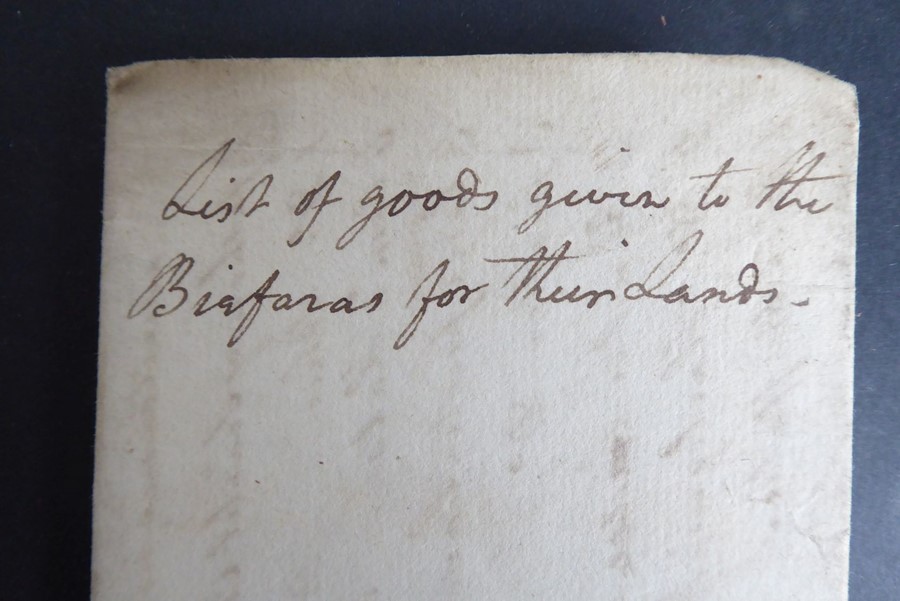 List of goods given to the
Biafaras for their Lands.